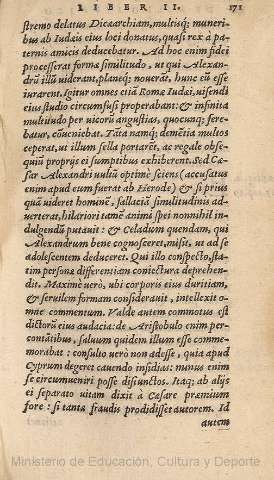 LIBER II. 171
stremo delatus Dicæarchiam, multisq; muneri-
bus ab Iudæis eius loci donatus, quasi rex à pa-
ternis amicis deducebatur. Ad hoc enim fidei
processerat formæ similitudo, ut qui Alexan-
drũ illũ uiderant, planeq; nouerãt, hunc eũ esse
iurarent. Igitur omnes etiã Romæ Iudæi, uisendi
eius studio circumfusi properabant: & infinita
multitudo per uicorũ angustias, quocunq; fere-
batur, cõueniebat. Tãta namq; demẽtia multos
ceperat, ut illum sella portarẽt, ac regale obse-
quiũ proprijs ei sumptibus exhiberent. Sed Cæ-
sar Alexandri uultũ optimè sciens (accusatus
enim apud eum fuerat ab Herode) & si prius
quã uideret hominẽ, fallaciã similitudinis ad-
uerterat, hilariori tamẽ animi spei nonnihil in-
dulgendũ putauit: & Celadum quendam, qui
Alexandrum bene cognosceret, misit, ut ad se
adolescentem deduceret. Qui illo conspecto, sta-
tim personæ differentiam coniectura deprehen-
dit. Maximè uerò, ubi corporis eius duritiam,
& seruilem formam considerauit, intellexit o-
mne commentum. Valdè autem commotus est
dictorũ eius audacia: de Aristobulo enim per-
contãtibus, saluum quidem illum esse comme-
morabat: consulto uerò non adesse, quia apud
Cyprum degeret cauendo insidias: minus enim
se circumueniri posse disiunctos. Itaq; ab alijs
ei separato uitam dixit à Cæsare præmium
fore: si tantæ fraudis prodidisset autorem. Id
autem
Ministerio de Educación, Cultura y Deporte